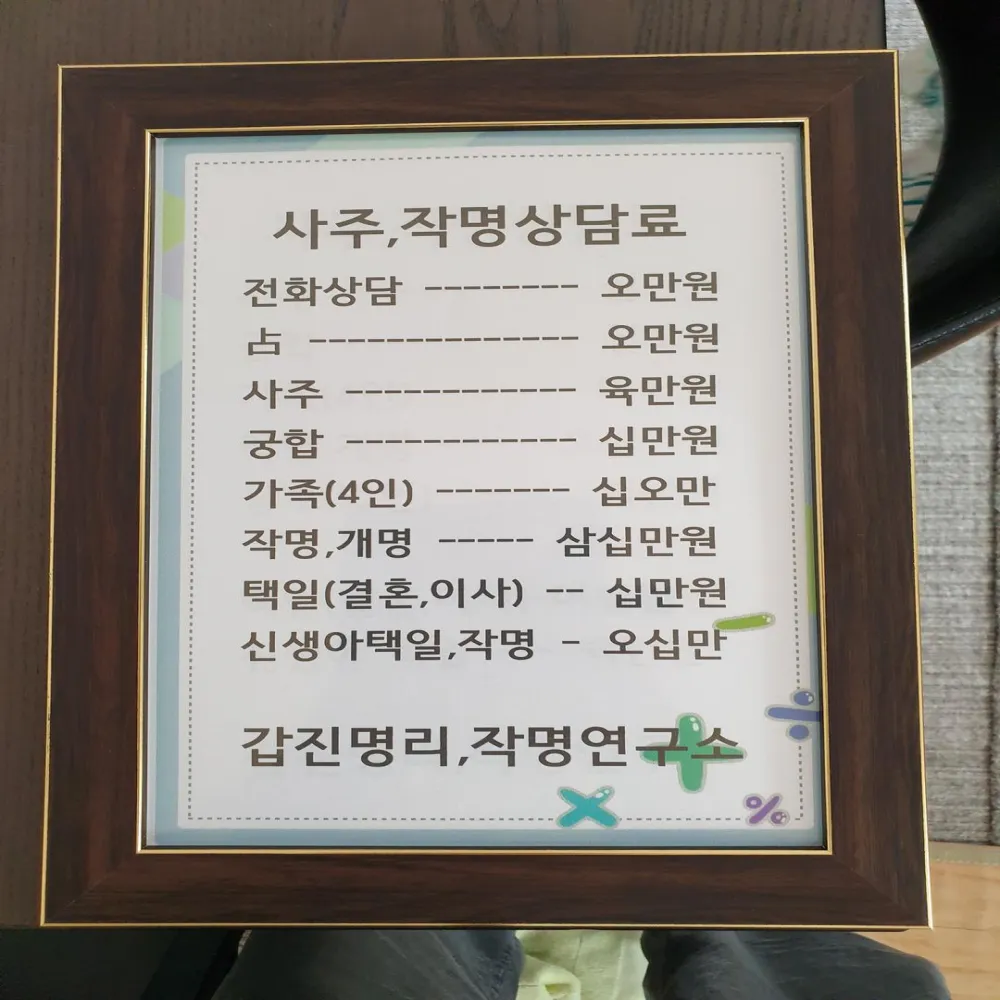 사주,작명상담료
전화상담 -------- 오만원
占 -------------- 오만원
사주 ------------ 육만원
궁합 ------------ 십만원
가족(4인) ------- 십오만
작명,개명 ----- 삼십만원
택일(결혼,이사) -- 십만원
신생아택일,작명 - 오십만
갑진명리,작명연구소